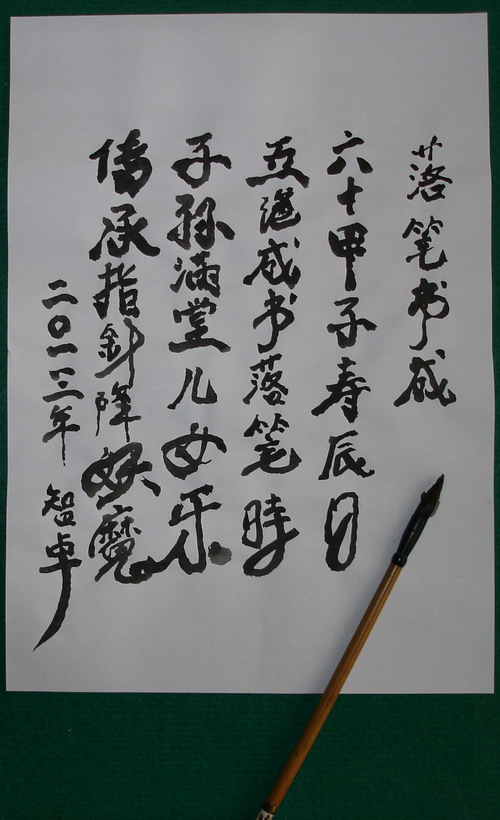 落笔书成
六十甲子寿辰日
五成书落笔时
子孫满堂儿女乐
傳承指針降妖魔
二〇一三年 智卓